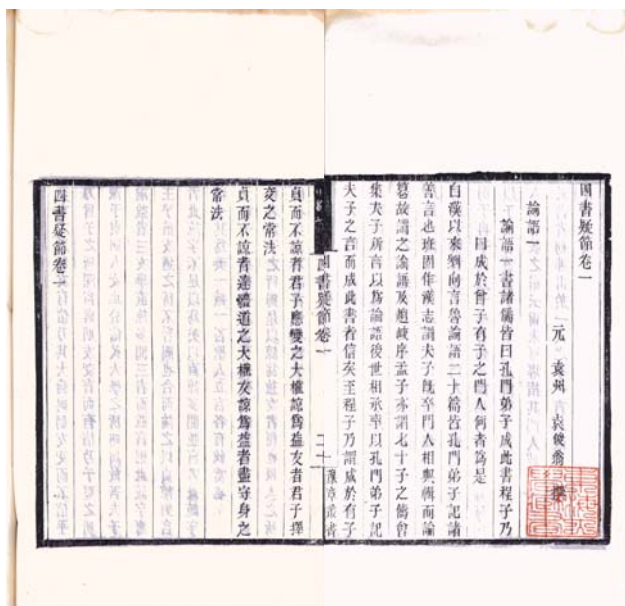 四書疑節卷一
元 袁州 袁俊翁 撰
論語一
論語一書諸儒皆曰孔門弟子成此書程子乃
曰成於曾子有子之門人何者爲是
自漢以來劉向言魯論語二十篇皆孔門弟子記諸
善言也班固作漢志謂夫子旣卒門人相與輯而論
篹故謂之論語及趙岐序孟子亦謂七十子之儔會
集夫子所言以爲論語後世相承率以孔門弟子記
夫子之言而成此書者信矣至程子乃謂成於有子
四書疑節卷一
豫章叢書
貞而不諒者君子應變之大權諒爲益友者君子擇
交之常法
貞而不諒者達體道之大權友諒爲益者盡守身之
常法
四書疑節卷一